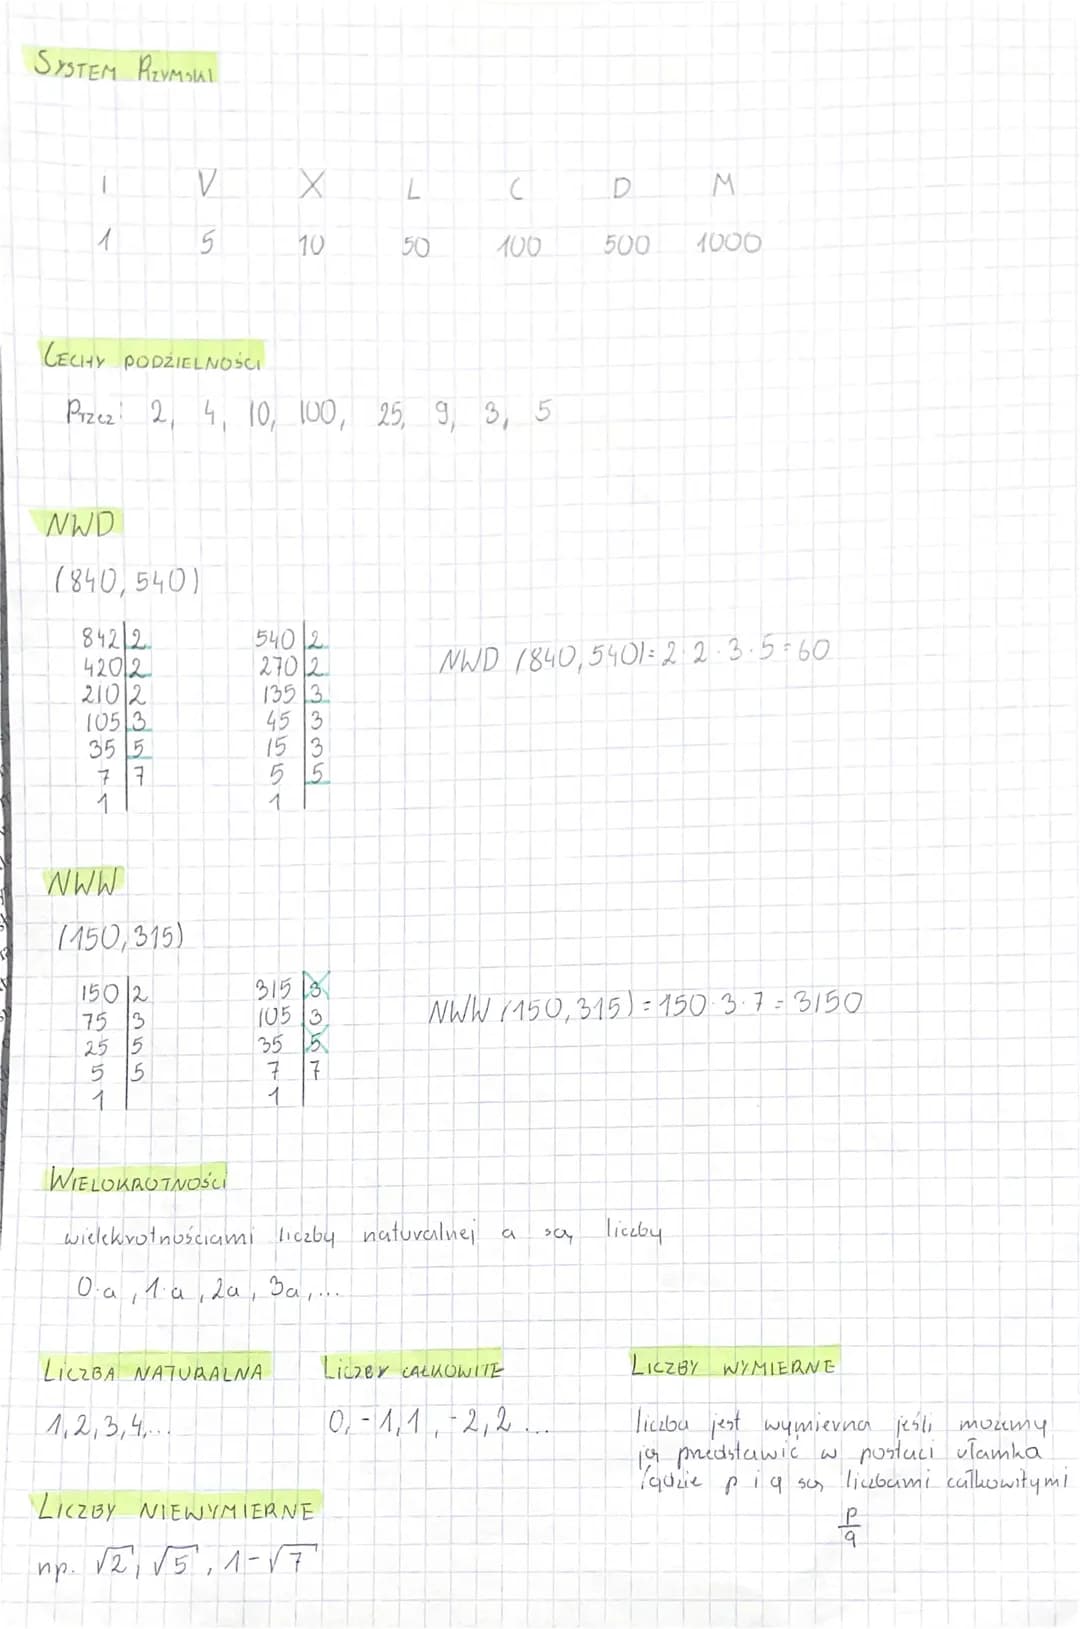 SYSTEM RZYMSKI
I V X L C D M
1 5 10 50 100 500 1000
CECHY PODZIELNOŚCI
Przez: 2, 4, 10, 100, 25, 9, 3, 5
NWD
(840, 540)
842 | 2 540 | 2
420 | 2 270 | 2
210 | 2 135 | 3
105 | 3 45 | 3
35 | 5 15 | 3
7 | 7 5 | 5
1 | 1 |
NWD (840, 540) = 2·2·3·5 = 60
NWW
(150, 315)
150 | 2 315 | 3
75 | 3 105 | 3
25 | 5 35 | 5
5 | 5 7 | 7
1 | 1
NWW (150, 315) = 150·3·7 = 3150
WIELOKROTNOŚCI
wielekrotnościami liczby naturalnej a są liczby
0·a, 1·a, 2a, 3a, ...
LICZBA NATURALNA
1, 2, 3, 4, ...
LICZBY CAŁKOWITE
0, -1, 1, -2, 2 ...
LICZBY WYMIERNE
liczba jest wymierna jeśli możemy
ją przedstawić w postaci ułamka
/gdzie p i q są liczbami całkowitymi
p/q
LICZBY NIEWYMIERNE
np. √2, √5, 1-√7